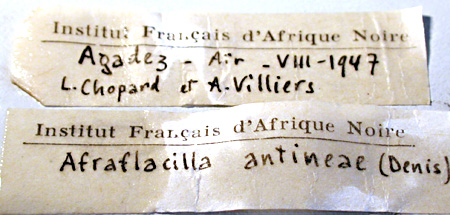 Institut Français d'Afrique Noire
Agadez - Aïr - VIII-1947
L. Chopard et A. Villiers
Institut Français d'Afrique Noire
Afraflacilla antineae (Denis)